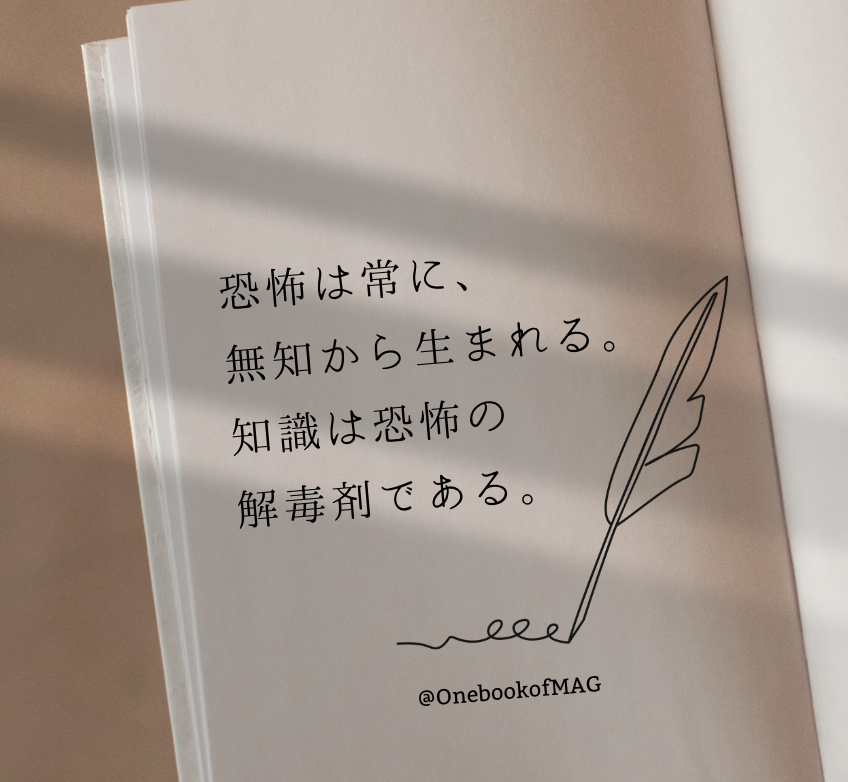 恐怖は常に、
無知から生まれる。
知識は恐怖の
解毒剤である。
@OnebookofMAG